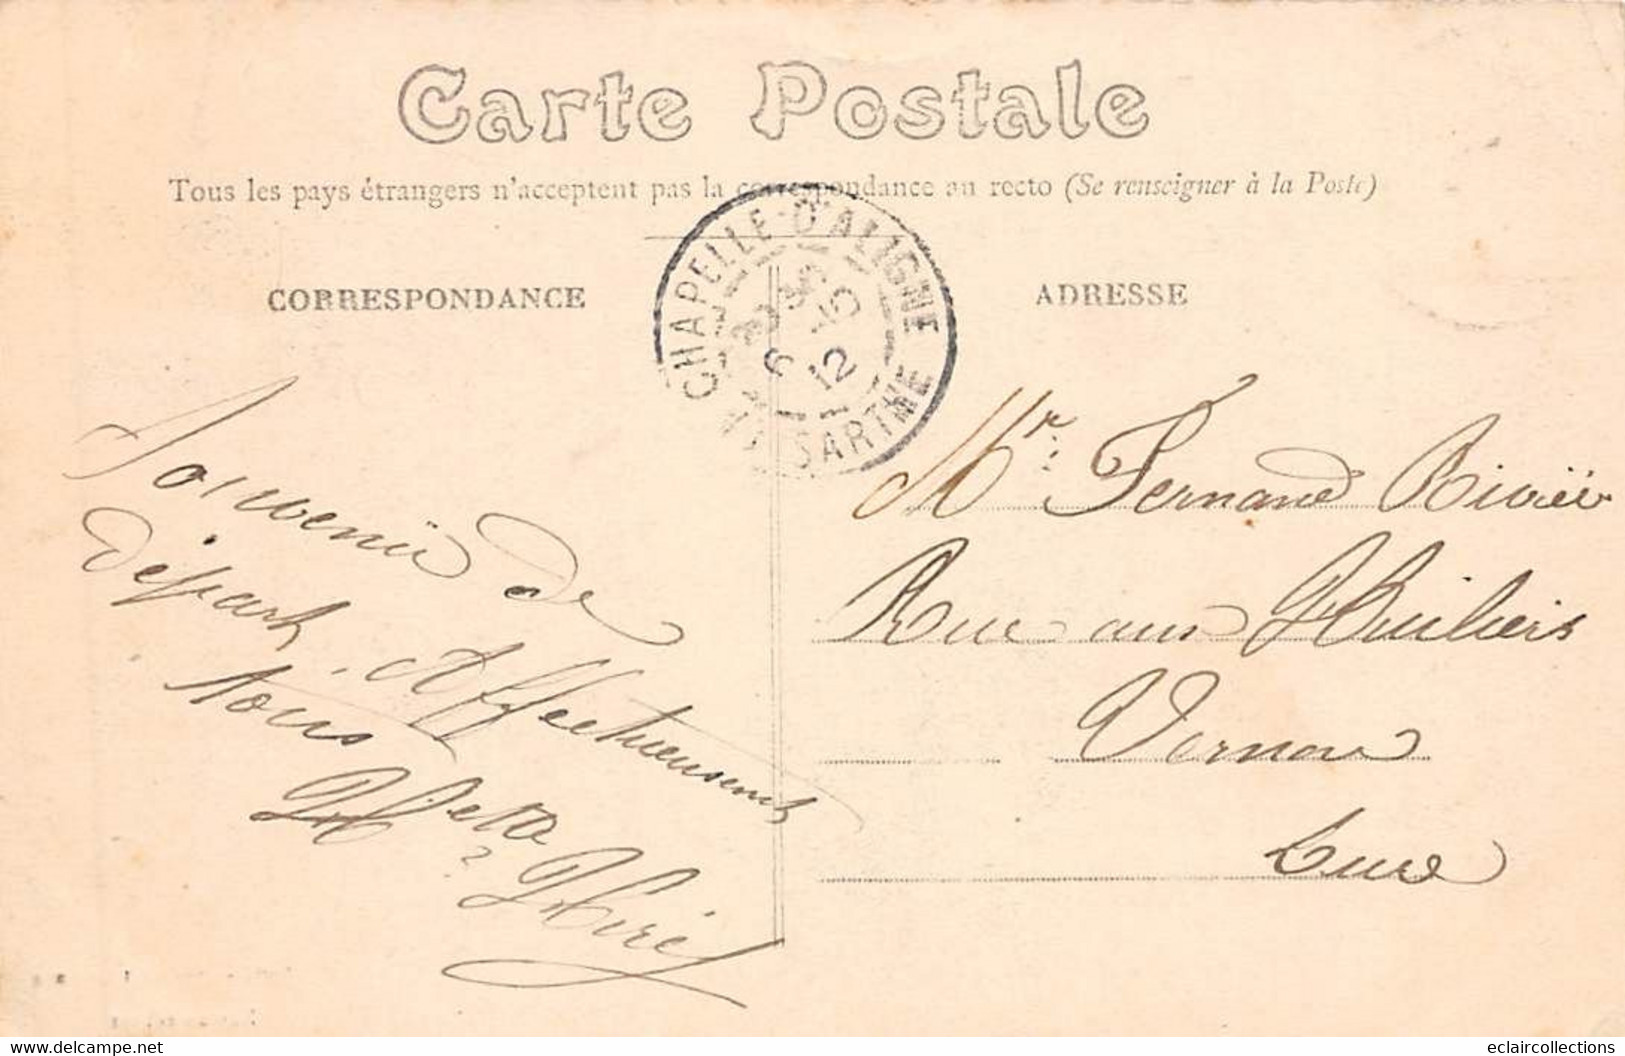 Carte Postale
Tous les pays étrangers n'acceptent pas la correspondance au recto (Se renseigner à la Poste)
CHAPELLE-D'ALIGNE
6 12
SARTHE
CORRESPONDANCE
ADRESSE
Souvenir de
départ,
Affectueusement
tous
Huré
Mr Fernand Rivière
Rue aux Huiliers
Vernon
Eure
www.delcampe.net
eclaircollections